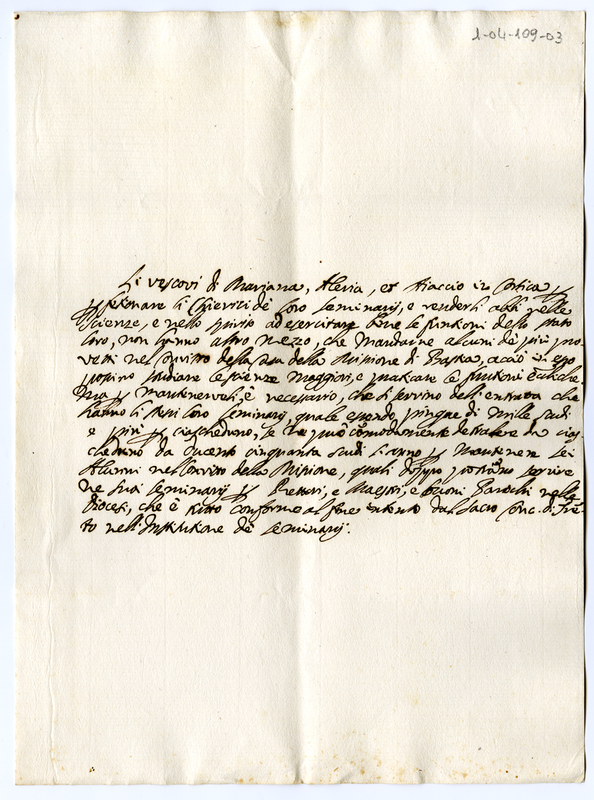 1-04-109-03
Li Vescovi di Mariana, Aleria, et Aiaccio in Corsica p
perfetionare li Chierici de loro Seminarij, e renderli abili nelle
Scienze, e nello spirito ad esercitare bene le funtioni dello stato
loro, non hanno altro mezzo, che mandarne alcuni de più pro
vetti nel convitto della della Missione di Bastia, acciò in esso
possino studiare le scienze maggiori, e praticare le funtioni Ecclche
Ma p mantenervoli, è necessario, che si servino dell'entrata che
hanno li stessi loro Seminarij, quale essendo pingue di mille scudi
e più p ciascheduno, se ne può comodamente detrahere da cias
cheduno da ducento cinquanta scudi l'anno p mantenere sei
Alunni nel convitto della Missione, quali doppo potranno servire
ne suoi Seminarij p Prefetti, e Maestri, e buoni Parochi nelle
Diocesi, che è tutto conforme al fine inteso dal Sacro Conc. di Tren
to nell'Institutione de Seminarij.